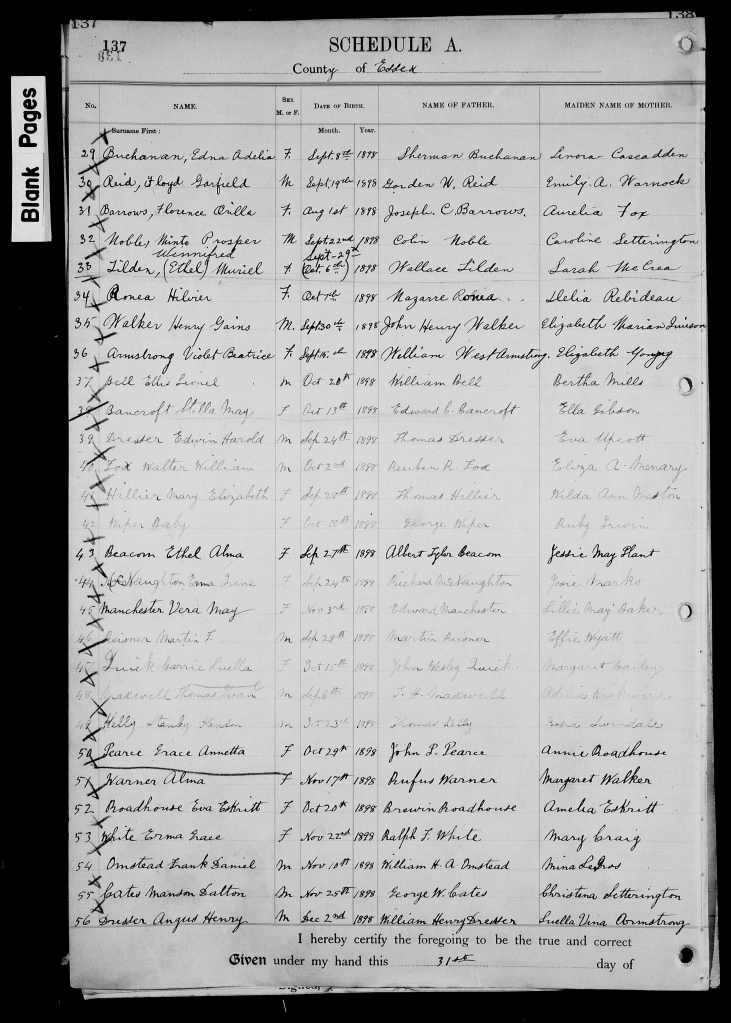 137
138
137
SCHEDULE A.
County of Essex
Blank Pages
No. NAME. SEX. M. or F. DATE OF BIRTH. NAME OF FATHER. MAIDEN NAME OF MOTHER.
Surname First: Month. Year.
29 Buchanan, Edna Adelia F. Sept. 8th 1898 Sherman Buchanan Lenora Cascadden
30 Reid, Floyd Garfield M Sept. 19th 1898 Gorden W. Reid Emily A. Warnock
31 Barrows, Florence Orilla F. Aug 1st 1898 Joseph C. Barrows. Aurelia Fox
32 Noble, Minto Prosper M Sept. 22nd 1898 Colin Noble Caroline Setterington
Winnifred Sept-29th
33 Tilden, (Ethel) Muriel F (Oct. 6th) 1898 Wallace Tilden Sarah McCrea
34 Ronea Hilvier F. Oct 1st 1898 Nazarre Ronea Delia Rebideau
35 Walker Henry Gains M. Sept 30th 1898 John Henry Walker Elizabeth Marian
36 Armstrong Violet Beatrice F. Sept. 1898 William West Armstrong. Elizabeth Young
37 Bell Ellis Lionel m Oct 20th 1898 William Bell Bertha Mills
38 Bancroft Willa May F Oct 13th 1898 Edward C. Bancroft Ella Gibson
39 Dresser Edwin Harold m Sep 24th 1898 Thomas Dresser Eva Upcott
40 Fox Walter William m Oct 2nd 1898 Reuben R. Fox Eliza A. Menary
41 Hillier Mary Elizabeth F Sep 28th 1898 Thomas Hillier Wilda Ann
42 Wiper Baby F Oct 1898 George Wiper Ruby Irwin
43 Beacom Ethel Alma F Sep 27th 1898 Albert Tyler Beacom Jessie May Plant
44 McNaughton Erma Irene F Sep 24th 1898 Richard McNaughton Marks
45 Manchester Vera May F Nov 3rd 1898 Edward Manchester Lillie May Baker
46 Martin F. m Sep 28th 1898 Martin Effie Wyatt
47 Quick Carrie Luella F Oct 15th 1898 John Wesley Quick Margaret
48 Maxwell Thomas m Sep 1898 T. H. Maxwell
49 Kelly Stanley m Oct 23rd 1898 Thomas Kelly
50 Pearce Grace Annetta F Oct 29th 1898 John P. Pearce Annie Roadhouse
51 Warner Alma F Nov 17th 1898 Rufus Warner Margaret Walker
52 Roadhouse Eva Eskritt F Oct 20th 1898 Brewin Roadhouse Amelia Eskritt
53 White Erma Grace F Nov 22nd 1898 Ralph F. White Mary Craig
54 Omstead Frank Daniel m Nov 10th 1898 William H. A Omstead Mina LeGros
55 Cates Manson Dalton m Nov 25th 1898 George W. Cates Christena Setterington
56 Dresser Angus Henry M Dec 2nd 1898 William Henry Dresser Luella Vina Armstrong
I hereby certify the foregoing to be the true and correct
Given under my hand this 31st day of